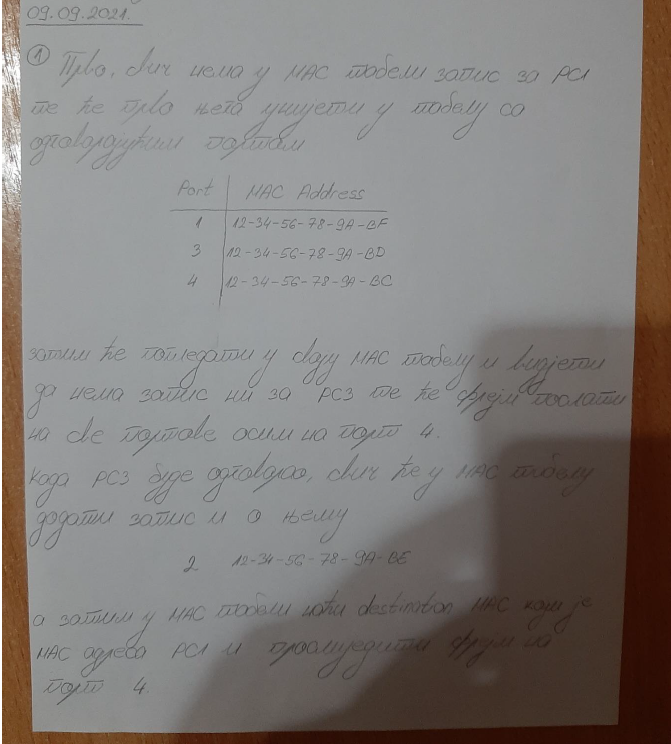 09.09.2021.
① Прво, свич нема у MAC табели запис за PC1
те ће прво њега унијети у табелу са
одговарајућим портом
Port MAC Address
1 12-34-56-78-9A-BF
3 12-34-56-78-9A-BD
4 12-34-56-78-9A-BC
затим ће погледати у своју MAC табелу и видјети
да нема запис ни за PC3 те ће фрејм послати
на све портове осим на порт 4.
Када PC3 буде одговарао, свич ће у MAC табелу
додати запис и о њему
2 12-34-56-78-9A-BE
а затим у MAC табели наћи destination MAC који је
MAC адреса PC1 и прослиједити фрејм на
порт 4.